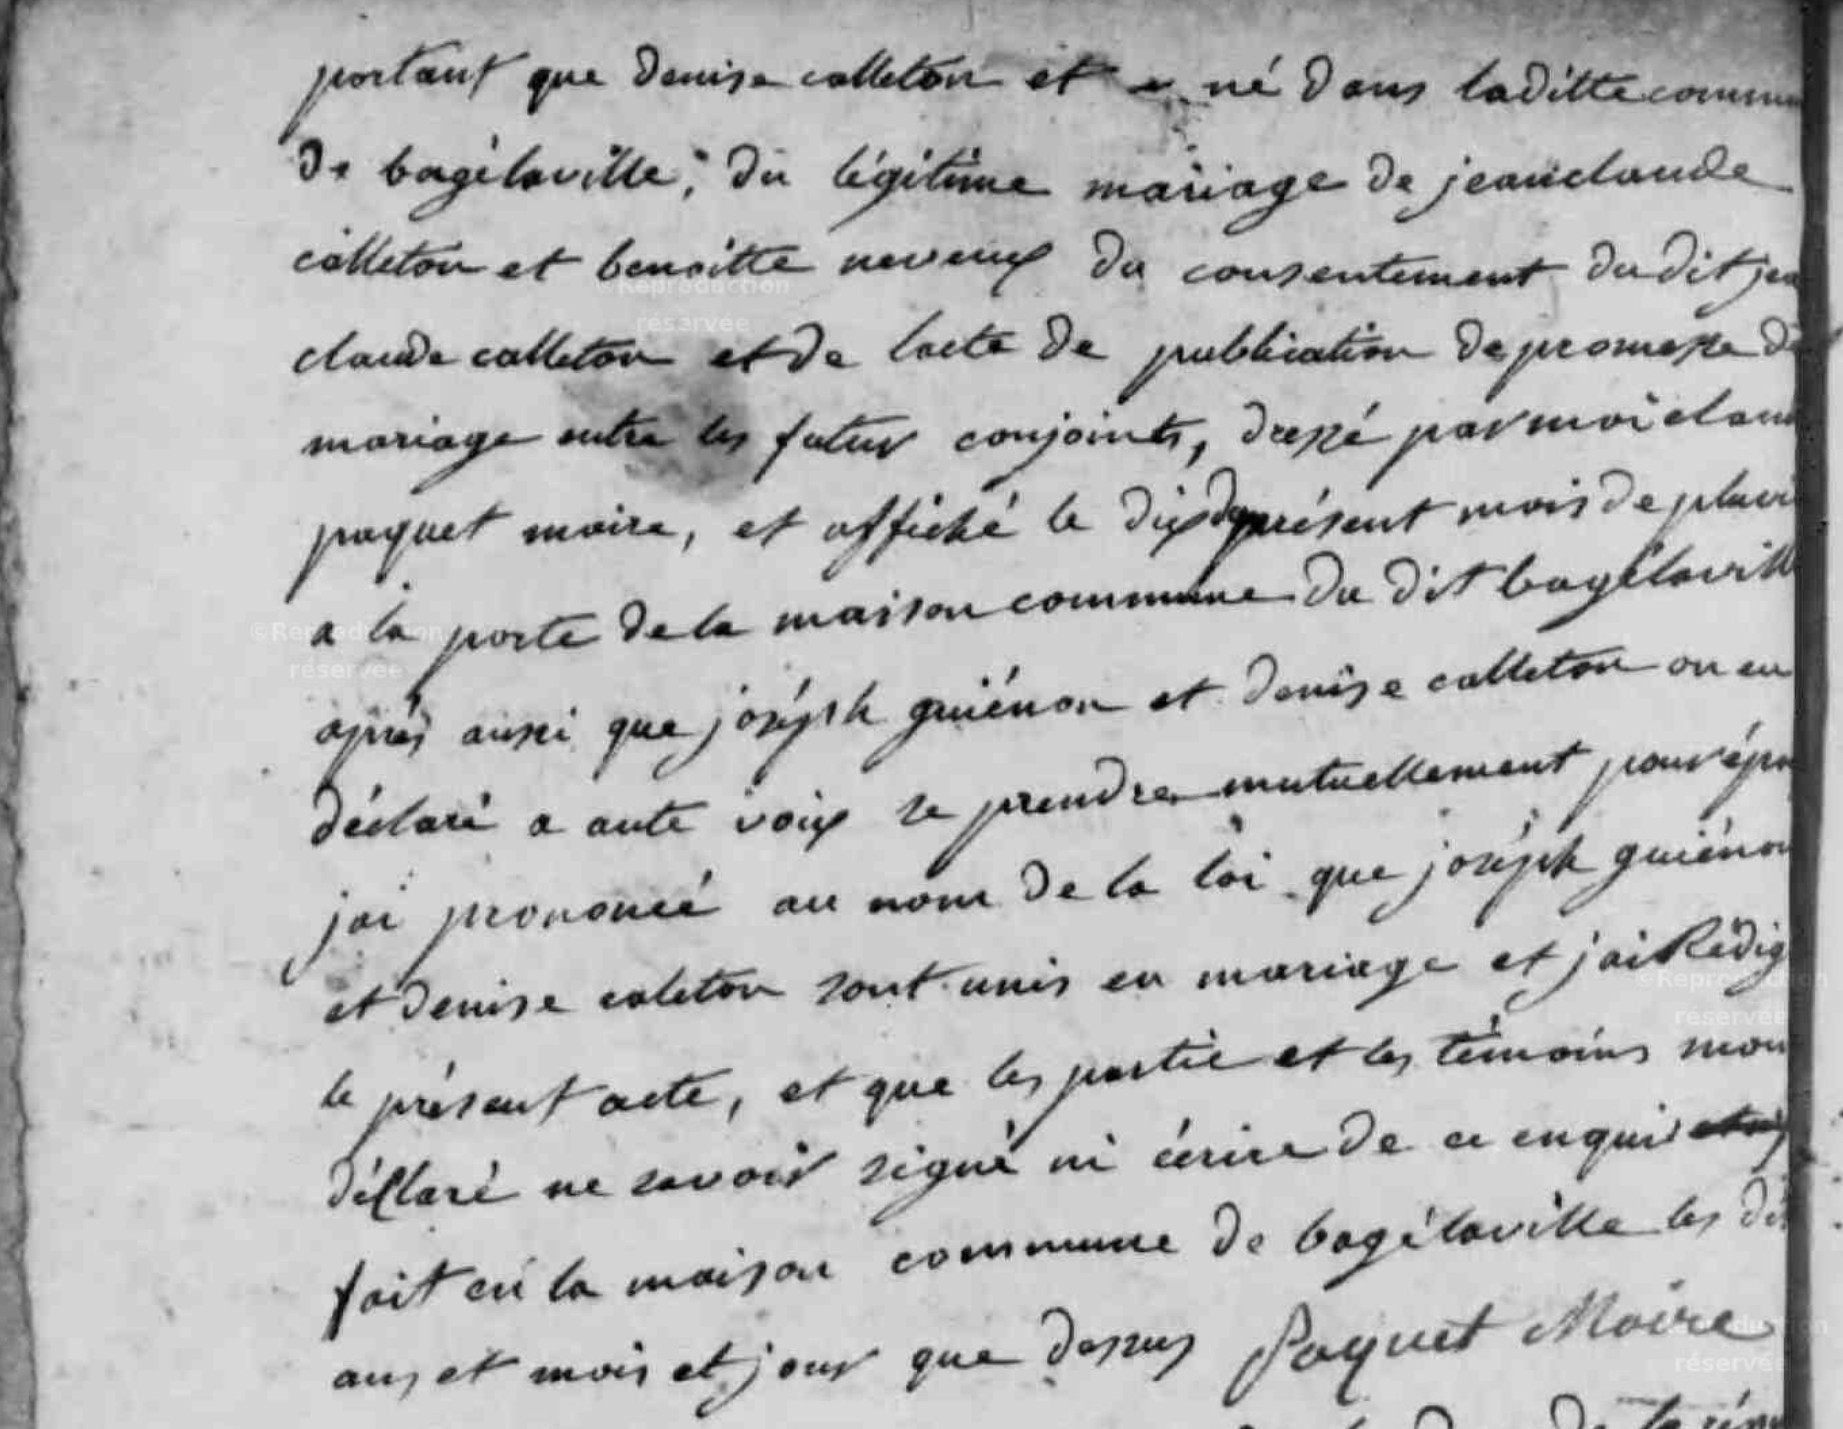 portant que denise calleton et né dans laditte commu
de bagélaville, du légitime mariage de jeanclaude
calleton et benoitte neveux du consentement du dit jea
claude calleton et de lacte de publication de promesse de
mariage entre les futur conjoints, dressé par moi clau
paquet maire, et affiché le dix du présent mois de pluvi
a la porte de la maison commune du dit bagélavill
après aussi que joséph guiénon et denise calleton on eu
déclaré a aute voix se prendre mutuellement pour épo
jai prononcé au nom de la loi que joséph guiénon
et denise caleton sont unis en mariage et jai Rédig
le présent acte, et que les partie et les témoins mon
déclaré ne savoir signé ni écrire de ce enquis
fait en la maison commune de bagélaville les dit
ans et mois et jour que dessus Paquet Maire